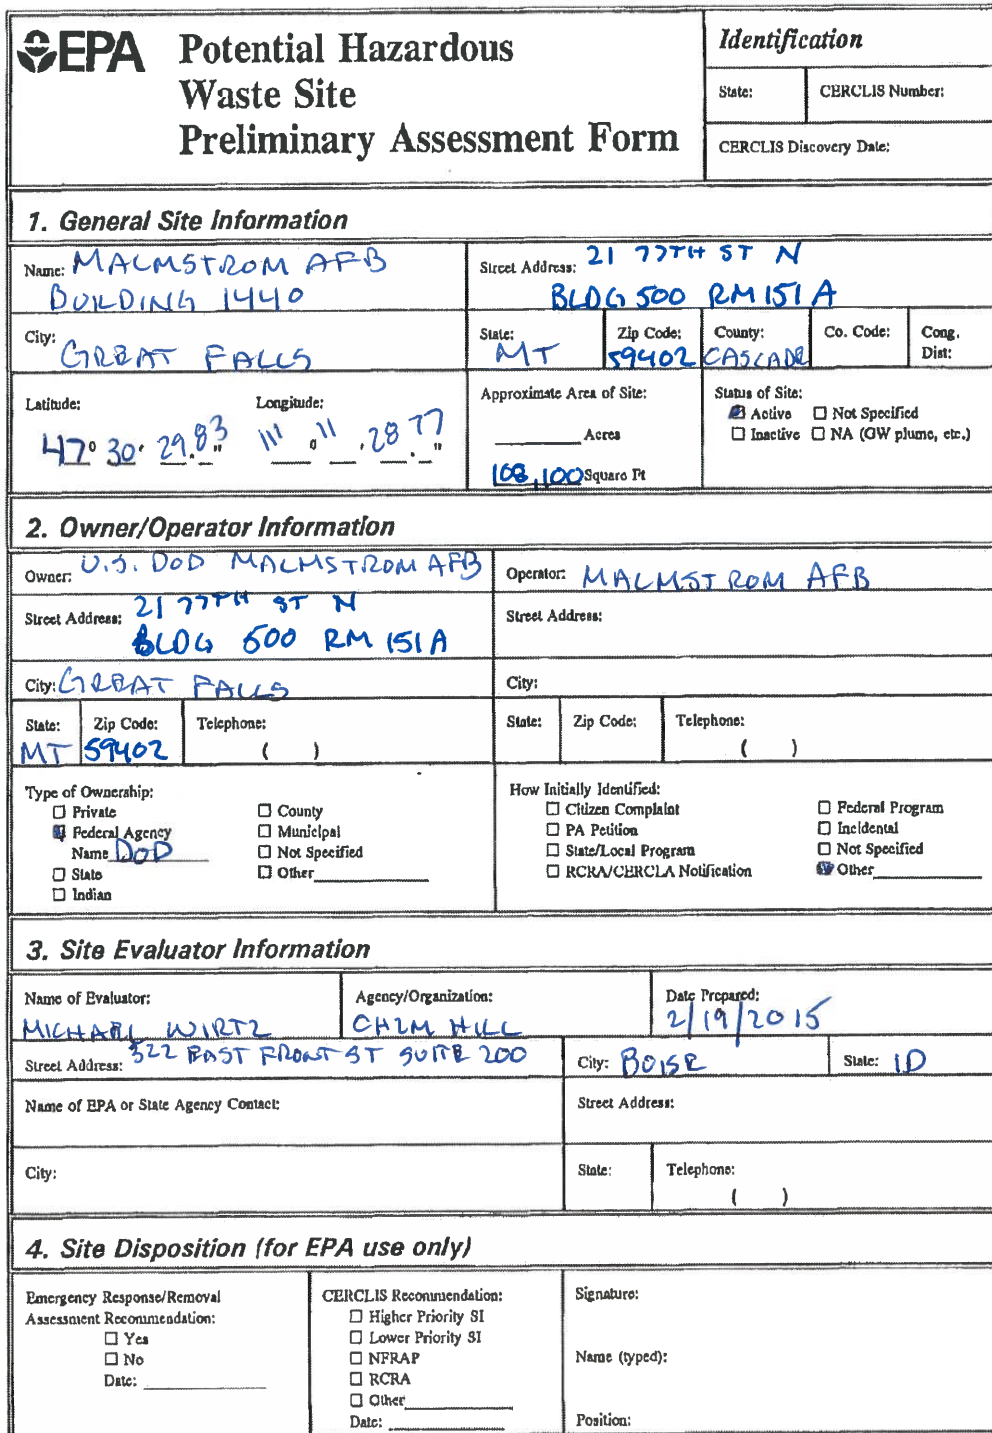 EPA Potential Hazardous
Waste Site
Preliminary Assessment Form
Identification
State: CERCLIS Number:
CERCLIS Discovery Date:
1. General Site Information
Name: MALMSTROM AFB
BUILDING 1440
Street Address: 21 77TH ST N
BLDG 500 RM 151 A
City: GREAT FALLS
State: MT
Zip Code: 59402
County: CASCADE
Co. Code:
Cong. Dist:
Latitude: 47° 30' 29.83"
Longitude: 111° 11' 28.77"
Approximate Area of Site:
Acres
108,100 Square Ft
Status of Site:
Active Not Specified
Inactive NA (GW plume, etc.)
2. Owner/Operator Information
Owner: U.S. DOD MALMSTROM AFB
Operator: MALMSTROM AFB
Street Address: 21 77TH ST N
BLDG 500 RM 151 A
Street Address:
City: GREAT FALLS
City:
State: MT
Zip Code: 59402
Telephone: ( )
State: Zip Code: Telephone: ( )
Type of Ownership:
Private County
Federal Agency Municipal
Name DOD Not Specified
State Other
Indian
How Initially Identified:
Citizen Complaint Federal Program
PA Petition Incidental
State/Local Program Not Specified
RCRA/CERCLA Notification Other
3. Site Evaluator Information
Name of Evaluator: MICHAEL WIRTZ
Agency/Organization: CH2M HILL
Date Prepared: 2/19/2015
Street Address: 322 EAST FRONT ST SUITE 200
City: BOISE
State: ID
Name of EPA or State Agency Contact:
Street Address:
City:
State: Telephone: ( )
4. Site Disposition (for EPA use only)
Emergency Response/Removal
Assessment Recommendation:
Yes
No
Date:
CERCLIS Recommendation:
Higher Priority SI
Lower Priority SI
NFRAP
RCRA
Other
Date:
Signature:
Name (typed):
Position: